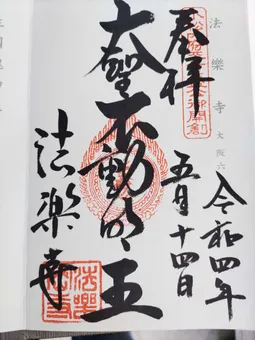 奉拝
令和四年
五月十四日
大聖不動明王
法楽寺
法樂寺 大阪六